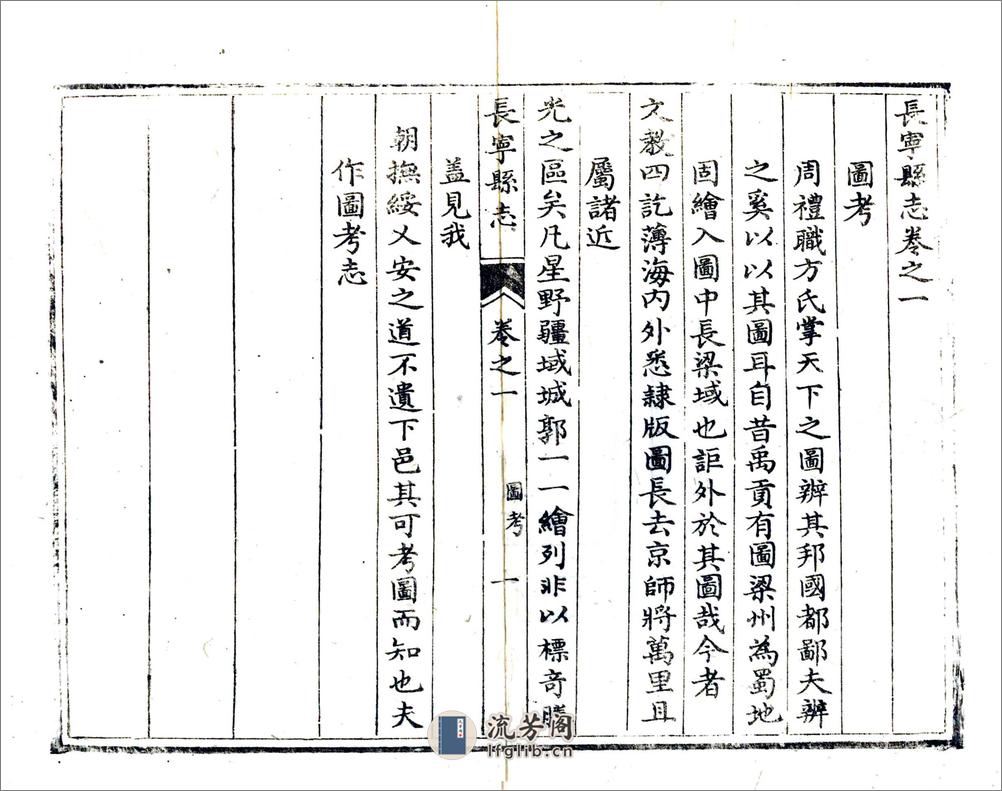 長寧縣志卷之一
圖考
周禮職方氏掌天下之圖辨其邦國都鄙夫辨
之奚以以其圖耳自昔禹貢有圖梁州為蜀地
固繪入圖中長梁域也詎外於其圖哉今者
文教四訖薄海內外悉隷版圖長去京師將萬里且
屬諸近
光之區矣凡星野疆域城郭一一繪列非以標奇勝
長寧縣志 卷之一 圖考 一
盖見我
朝撫綏乂安之道不遺下邑其可考圖而知也夫
作圖考志
流芳阁
lfglib.cn